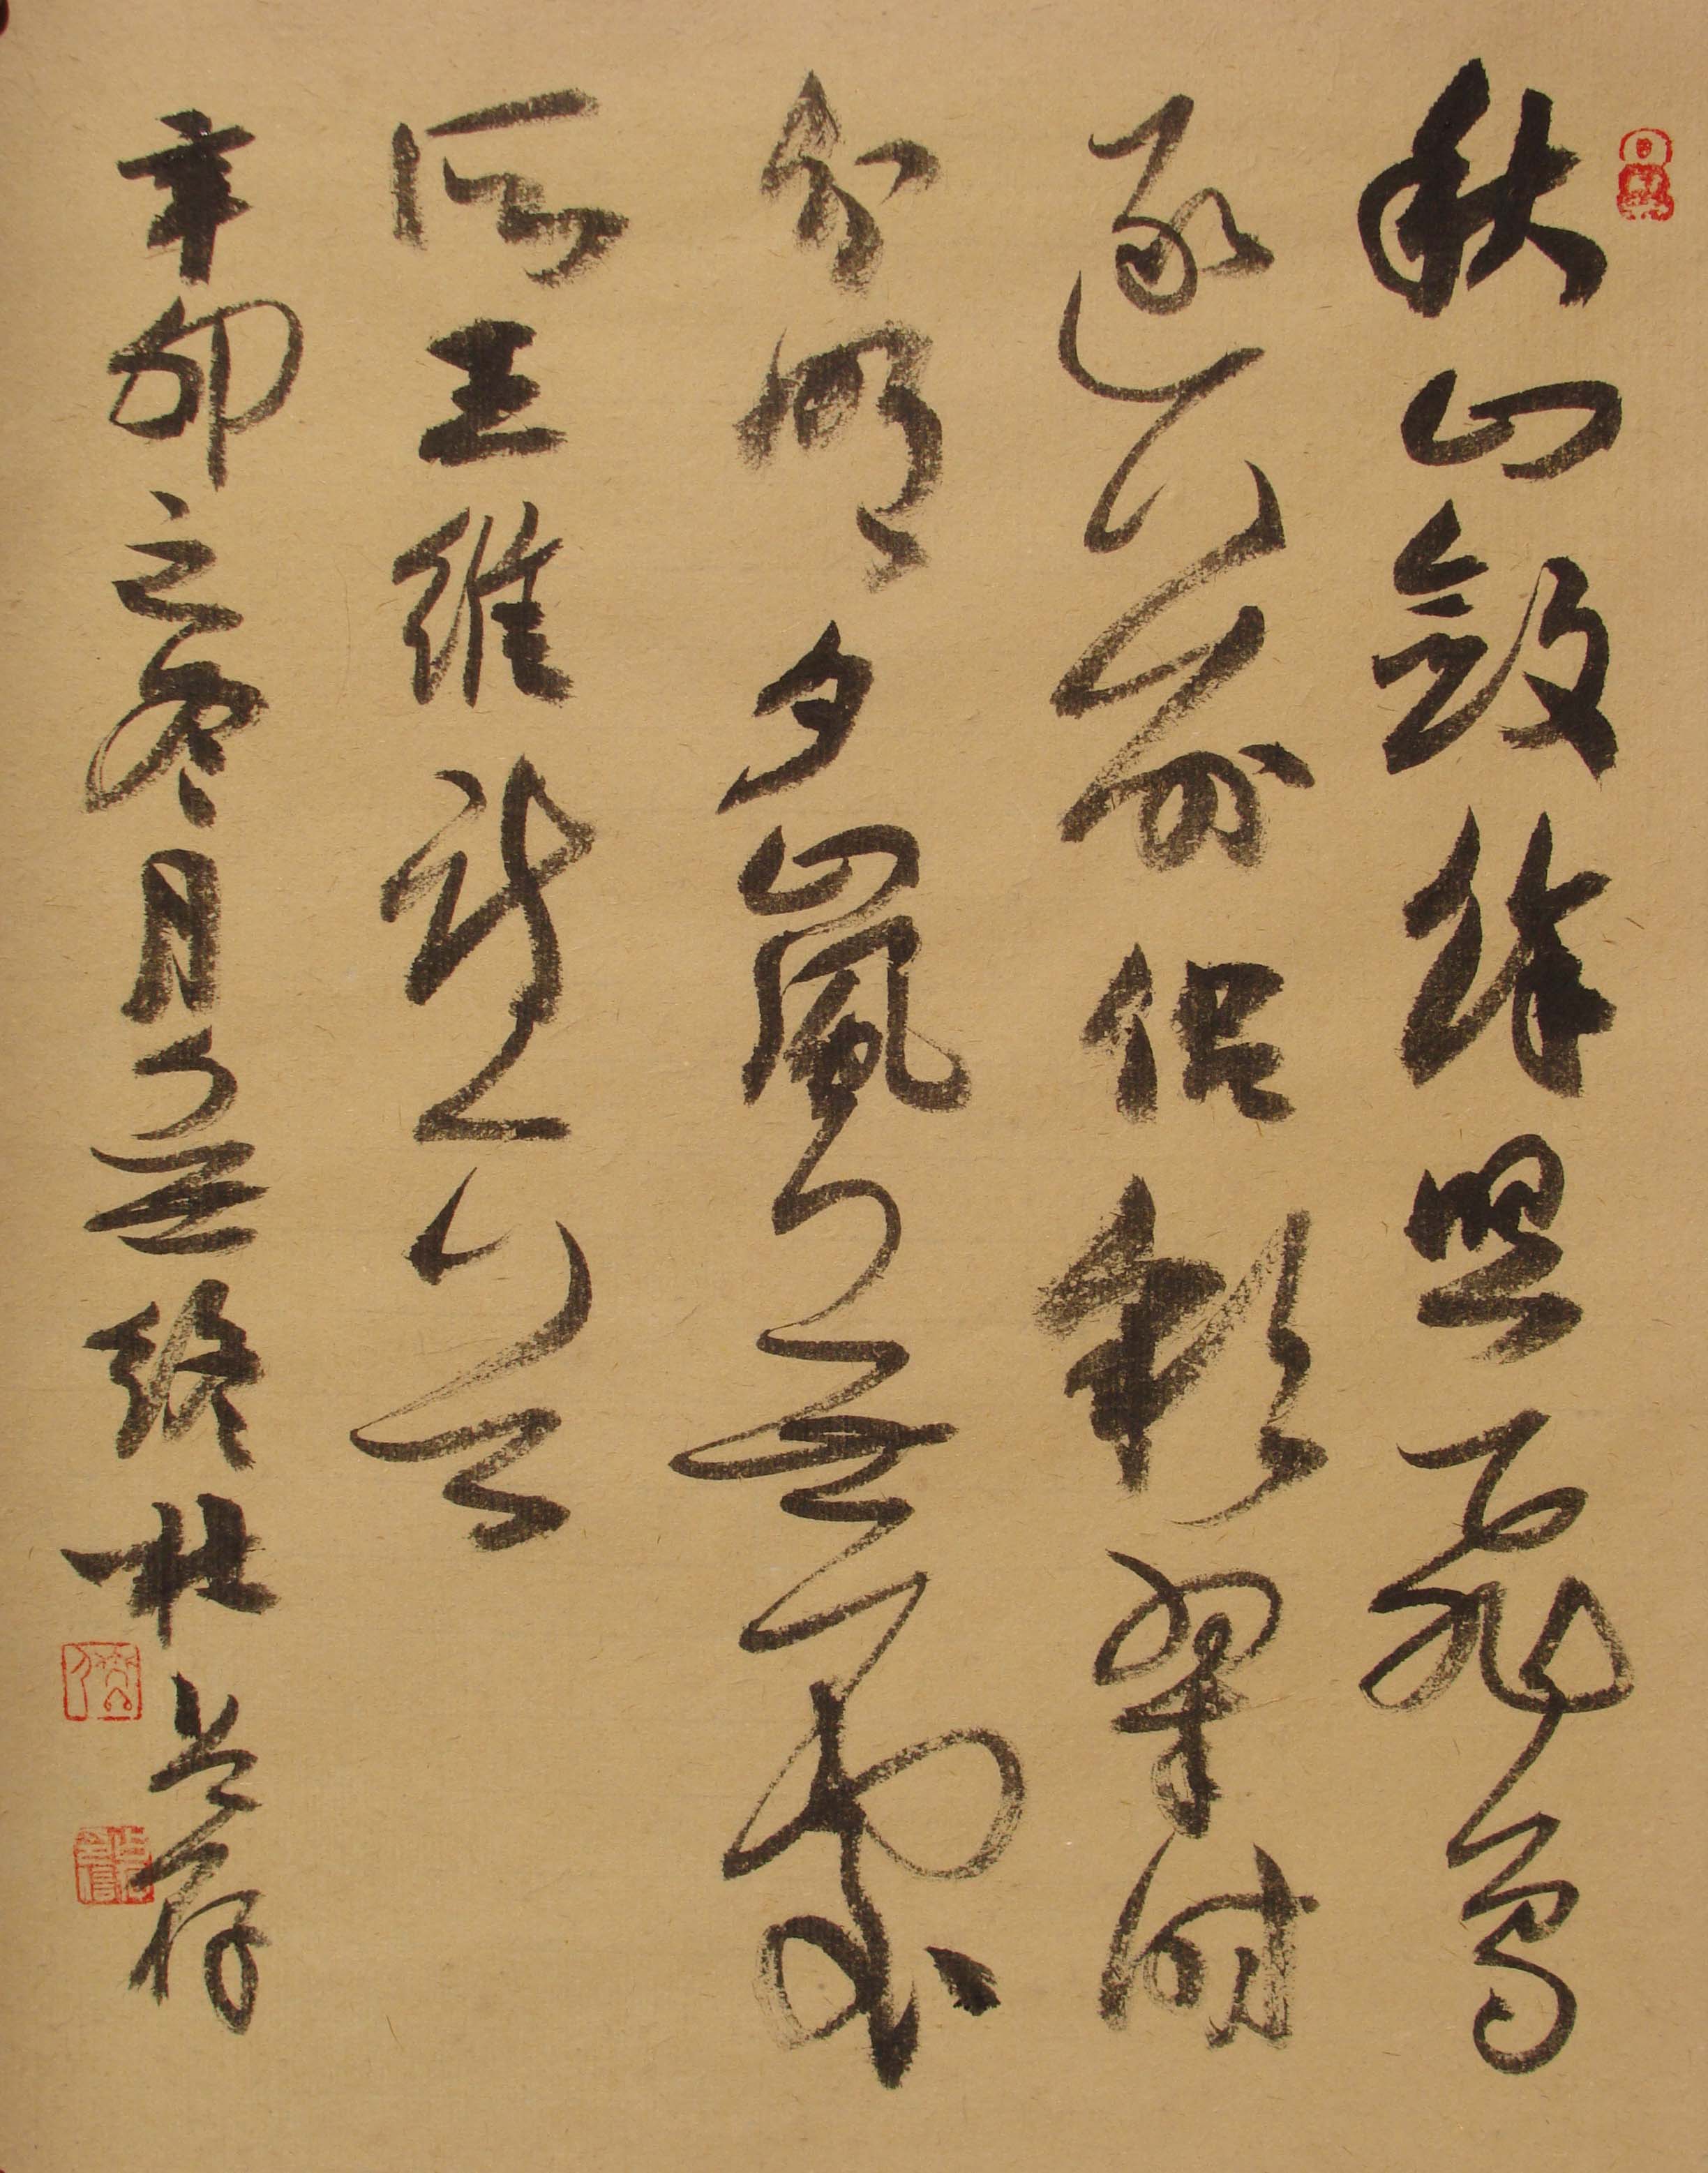 秋山斂餘照飛鳥
逐前侶彩翠時
分明夕嵐無處
所王維詩一首
辛卯之冬月無終杜